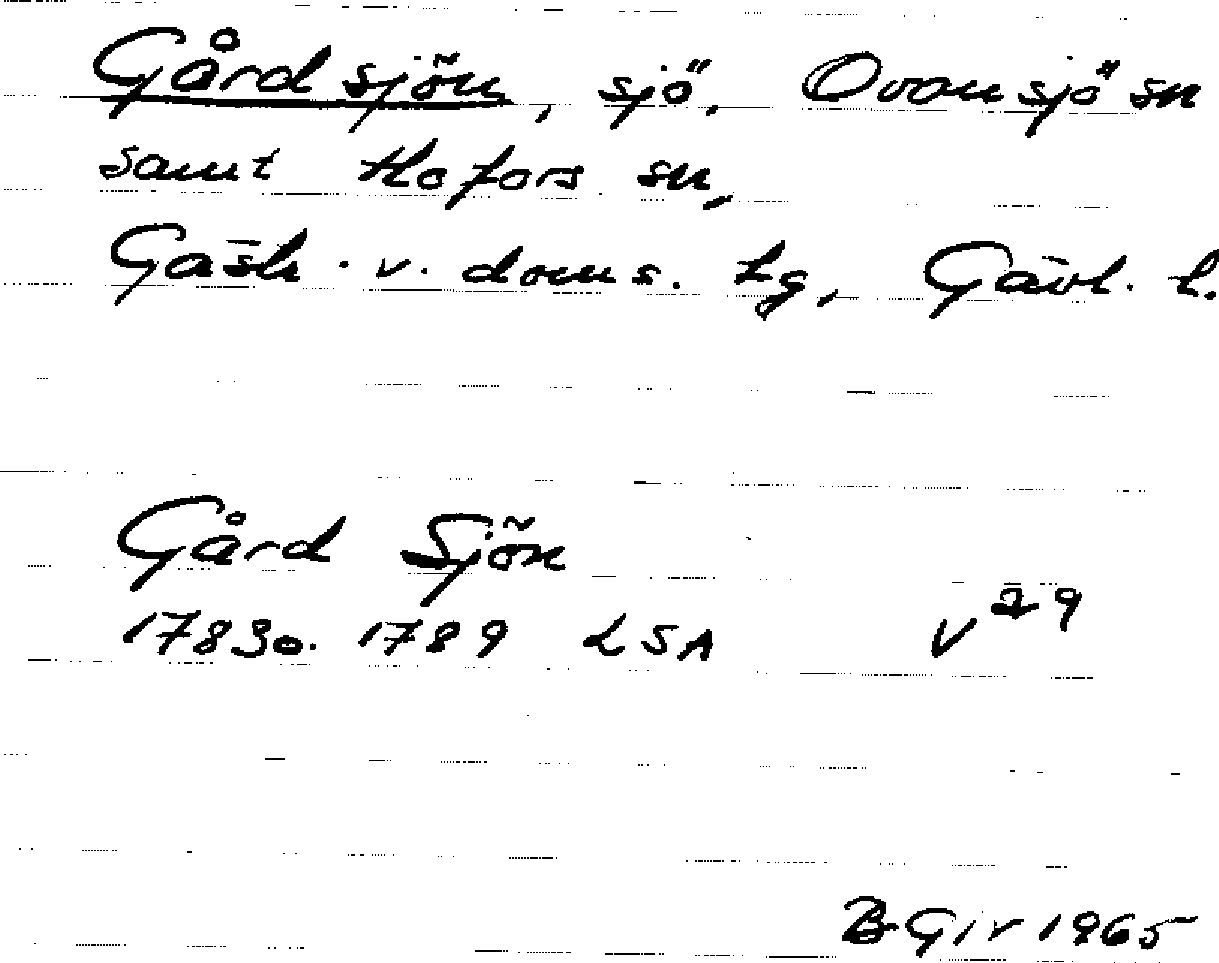 Gårdsjön, sjö, Ovansjö sn
samt Hofors sn,
Gästr. v. doms. tg, Gävl. l.
Gård Sjön
1783o. 1789 LSA V 29
1965